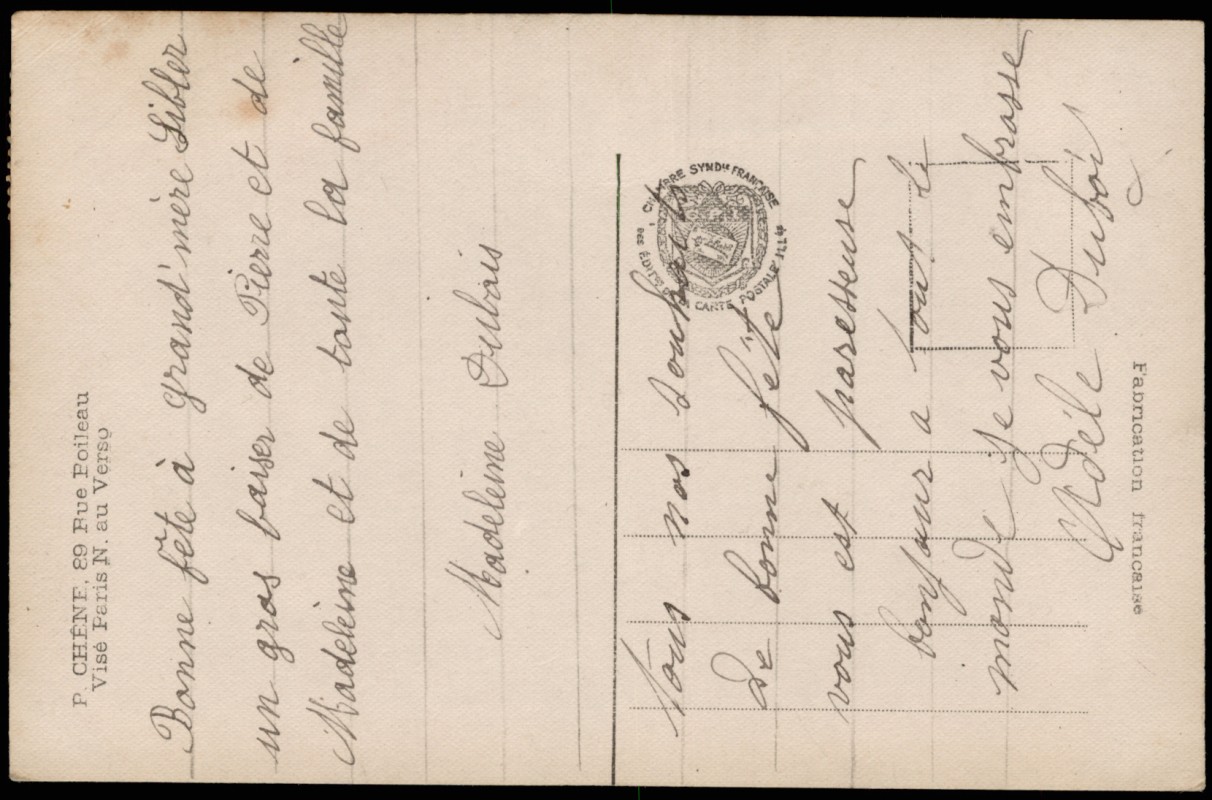 P. CHÊNE, 89 Rue Poileau
Visé Paris N. au Verso
Bonne fête à grand'mère Sibler
un gros baiser de Pierre et de
Madeleine et de toute la famille
Madeleine Dubois
CHAMBRE SYNDle FRANÇAISE
CARTE POSTALE ILLée
Tous nos souhaits
de bonne fête
vous est paresseuse
bonjour a tout le
monde je vous embrasse
Adèle Dubois
Fabrication française